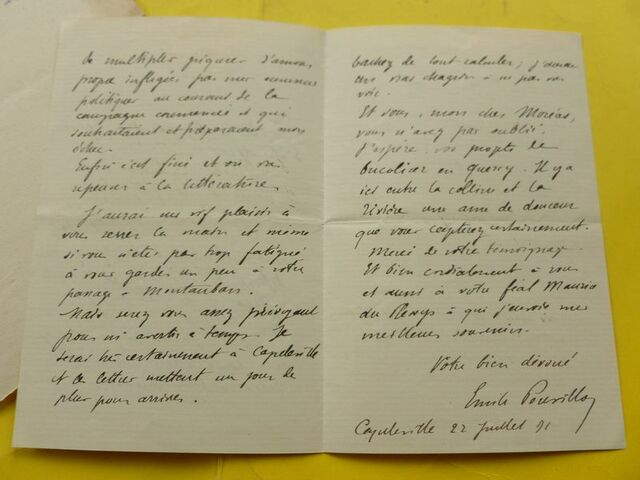 de multiples piqures d'amour
propre infligées par mes ennemis
politiques au courant de la
campagne commencée et qui
souhaitaient et préparaient mon
échec.
Enfin c'est fini et on va
repenser à la littérature.
J'aurai un vif plaisir à
vous serrer la main et même
si vous n'êtes pas trop fatigué
à vous garder un peu à votre
passage à Montauban.
Mais soyez vous assez prévoyant
pour m'avertir à temps. Je
serai très certainement à Capeleville
et les lettres mettent un jour de
plus pour arriver.
tachez de tout calculer, j'aurai
un vrai chagrin à ne pas vous
voir.
Et vous, mon cher Moréas,
vous n'avez pas oublié,
j'espère, vos projets de
bucolier en Quercy. Il y a
ici entre la colline et la
rivière une âme de douceur
que vous capterez certainement.
Merci de votre témoignage.
Et bien cordialement à vous
et aussi à votre féal Maurice
du Plessys à qui j'envoie mes
meilleurs souvenirs.
Votre bien dévoué
Emile Pouvillon
Capeleville 22 juillet 91